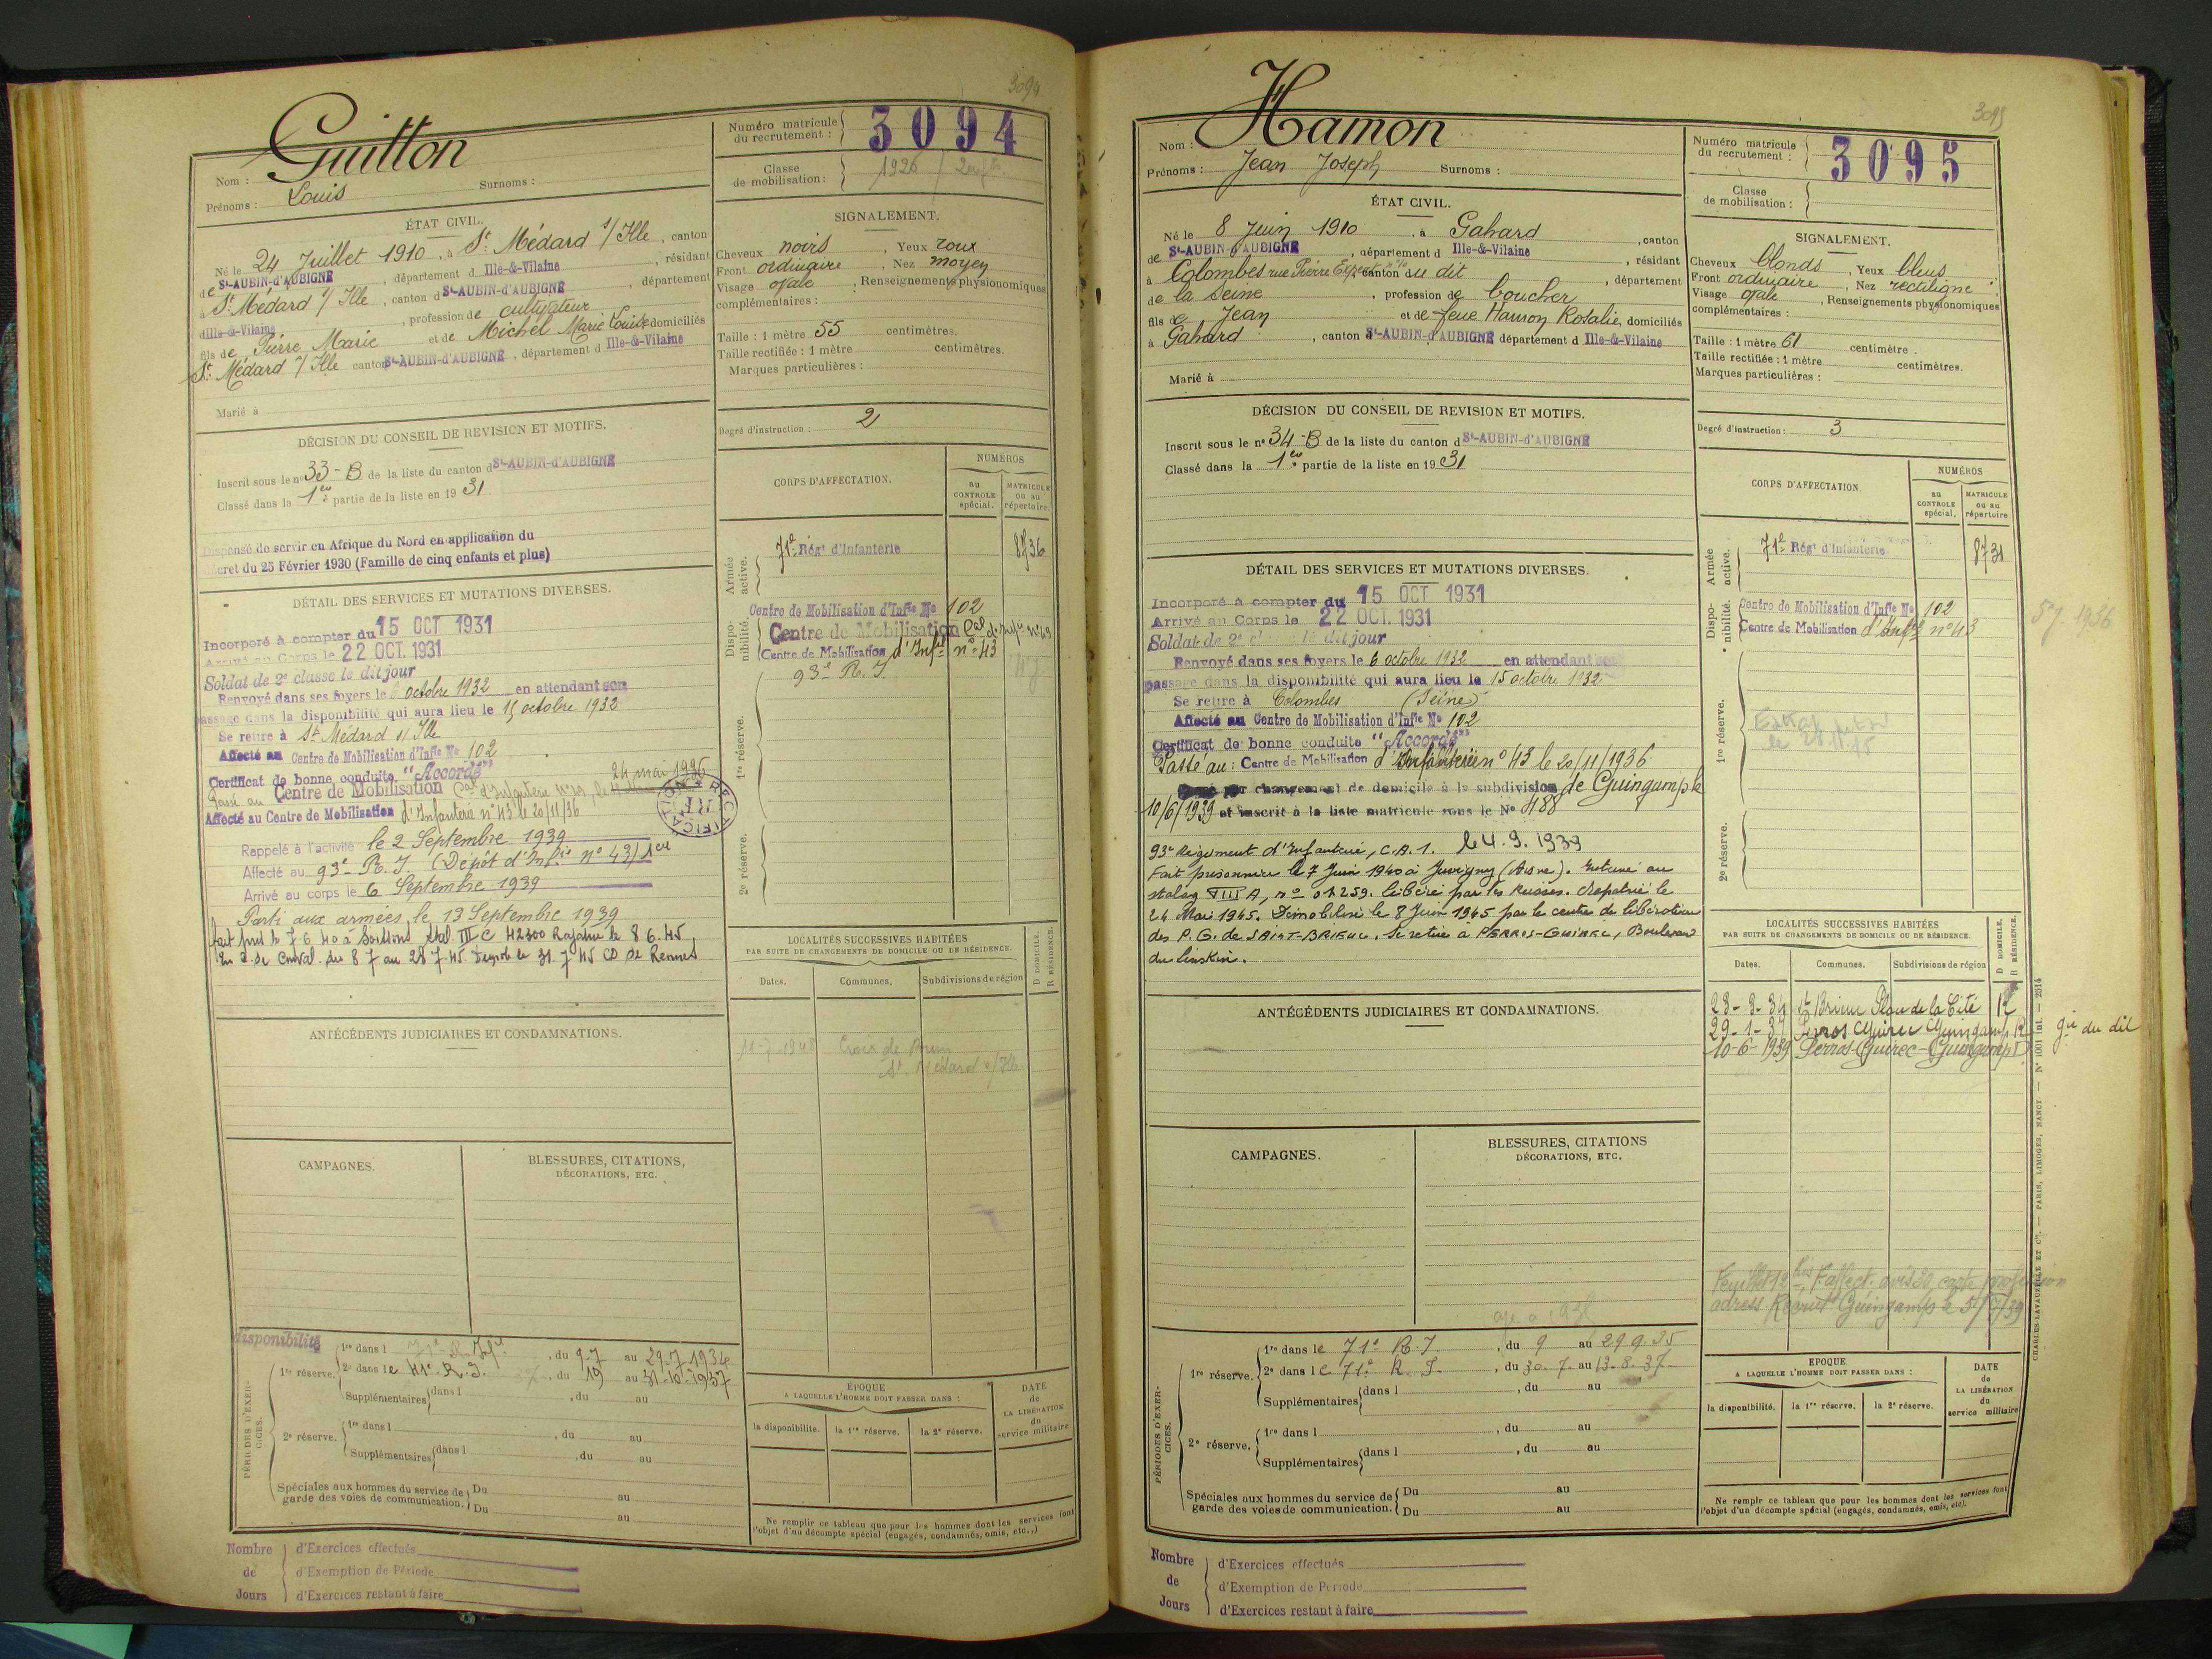 3094
Guitton
Nom :
Prénoms : Louis
Surnoms :
Numéro matricule du recrutement : 3094
Classe de mobilisation : 1926
ÉTAT CIVIL.
Né le 24 Juillet 1910, à St Médard s/ Ille, canton
de St-AUBIN-d'AUBIGNÉ, département d Ille-&-Vilaine, résidant
à St Médard s/ Ille, canton d St-AUBIN-d'AUBIGNÉ, département
d Ille-&-Vilaine, profession de cultivateur
fils de Pierre Marie et de Michel Marie Louise domiciliés
St Médard s/ Ille canton St-AUBIN-d'AUBIGNÉ, département d Ille-&-Vilaine
Marié à
SIGNALEMENT.
Cheveux noirs, Yeux roux
Front ordinaire, Nez moyen
Visage ovale, Renseignements physionomiques
complémentaires :
Taille : 1 mètre 55 centimètres.
Taille rectifiée : 1 mètre centimètres.
Marques particulières :
Degré d'instruction : 2
DÉCISION DU CONSEIL DE REVISION ET MOTIFS.
Inscrit sous le n° 33-B de la liste du canton d St-AUBIN-d'AUBIGNÉ
Classé dans la 1re partie de la liste en 1931
Dispensé de servir en Afrique du Nord en application du
décret du 25 Février 1930 (Famille de cinq enfants et plus)
DÉTAIL DES SERVICES ET MUTATIONS DIVERSES.
Incorporé à compter du 15 OCT 1931
Arrivé au Corps le 22 OCT. 1931
Soldat de 2e classe le dit jour
Renvoyé dans ses foyers le octobre 1932 en attendant son
passage dans la disponibilité qui aura lieu le 15 octobre 1932
Se retire à St Médard s/ Ille
Affecté au Centre de Mobilisation d'Infie No 102
Certificat de bonne conduite "Accordé"
Passé au Centre de Mobilisation Cal d'Infanterie n° 19, le 24 mai 1936
Affecté au Centre de Mobilisation d'Infanterie n° 43 le 20/11/36
Rappelé à l'activité le 2 Septembre 1939
Affecté au 93e R. I. (Dépôt d'Infie n° 43) 1re
Arrivé au corps le 6 Septembre 1939
Parti aux armées le 13 Septembre 1939
fait pris le 7 6 40 à Soissons Stal. III C 42300 Rapatrié le 8 6. 45
du 8 7 au 28 7. 45. le 31. 7 45 CD de Rennes
CORPS D'AFFECTATION.
NUMÉROS
au CONTROLE spécial.
MATRICULE ou au répertoire.
Armée active.
71e Régt d'Infanterie 8736
Disponibilité.
Centre de Mobilisation d'Infie No 102
Centre de Mobilisation Cal d'Infie n° 19
Centre de Mobilisation d'Infie n° 43
93e R. I.
1re réserve.
2e réserve.
LOCALITÉS SUCCESSIVES HABITÉES
PAR SUITE DE CHANGEMENTS DE DOMICILE OU DE RÉSIDENCE.
D DOMICILE.
R RÉSIDENCE.
Dates. Communes. Subdivisions de région
11-7-1948 Croix de
St Médard s/ Ille
ANTÉCÉDENTS JUDICIAIRES ET CONDAMNATIONS.
CAMPAGNES.
BLESSURES, CITATIONS,
DÉCORATIONS, ETC.
disponibilité
PÉRIODES D'EXERCICES.
1re réserve. 1re dans l 71e R. Infie, du 9.7 au 29.7 1934
2e dans le 41e R. I. du 19 au 31-10-1937
Supplémentaires dans l, du au
2e réserve. 1re dans l, du au
Supplémentaires dans l, du au
Spéciales aux hommes du service de garde des voies de communication. Du au
Du au
ÉPOQUE
A LAQUELLE L'HOMME DOIT PASSER DANS :
la disponibilité. la 1re réserve. la 2e réserve.
DATE de LA LIBÉRATION du service militaire.
Ne remplir ce tableau que pour les hommes dont les services font
l'objet d'un décompte spécial (engagés, condamnés, omis, etc.,)
Nombre de Jours
d'Exercices effectués
d'Exemption de Période
d'Exercices restant à faire
3095
Hamon
Nom :
Prénoms : Jean Joseph
Surnoms :
Numéro matricule du recrutement : 3095
Classe de mobilisation :
ÉTAT CIVIL.
Né le 8 Juin 1910, à Gahard, canton
de St-AUBIN-d'AUBIGNÉ, département d Ille-&-Vilaine, résidant
à Colombes rue Pierre canton du dit, département
de la Seine, profession de boucher
fils de Jean et de feue Hamon Rosalie, domiciliés
à Gahard, canton d St-AUBIN-d'AUBIGNÉ département d Ille-&-Vilaine
Marié à
SIGNALEMENT.
Cheveux blonds, Yeux bleus
Front ordinaire, Nez rectiligne
Visage ovale, Renseignements physionomiques
complémentaires :
Taille : 1 mètre 61 centimètre.
Taille rectifiée : 1 mètre centimètres.
Marques particulières :
Degré d'instruction : 3
DÉCISION DU CONSEIL DE REVISION ET MOTIFS.
Inscrit sous le n° 34-B de la liste du canton d St-AUBIN-d'AUBIGNÉ
Classé dans la 1re partie de la liste en 1931
DÉTAIL DES SERVICES ET MUTATIONS DIVERSES.
Incorporé à compter du 15 OCT 1931
Arrivé au Corps le 22 OCT. 1931
Soldat de 2e classe le dit jour
Renvoyé dans ses foyers le 6 octobre 1932 en attendant son
passage dans la disponibilité qui aura lieu le 15 octobre 1932
Se retire à Colombes (Seine)
Affecté au Centre de Mobilisation d'Infie No 102
Certificat de bonne conduite "Accordé"
Passé au : Centre de Mobilisation d'Infanterie n° 43 le 20/11/1936
Passé par changement de domicile à la subdivision de Guingamp le
10/6/1939 et inscrit à la liste matricule sous le No 488
93e Régiment d'Infanterie, C.A.1. le 4. 9. 1939
Fait prisonnier le 7 Juin 1940 à Juvigny (Aisne). Interné au
stalag VIII A, n° 01259. libéré par les Russes. Rapatrié le
24 Mai 1945. Démobilisé le 8 Juin 1945 par le centre de libération
des P. G. de SAINT-BRIEUC. Se retire à PERROS-GUIREC, Boulevard
du linskin.
CORPS D'AFFECTATION.
NUMÉROS
au CONTROLE spécial.
MATRICULE ou au répertoire
Armée active.
71e Régt d'Infanterie 8731
Disponibilité.
Centre de Mobilisation d'Infie No 102
Centre de Mobilisation d'Infie n° 43
1936
1re réserve.
2e réserve.
LOCALITÉS SUCCESSIVES HABITÉES
PAR SUITE DE CHANGEMENTS DE DOMICILE OU DE RÉSIDENCE.
D DOMICILE.
R RÉSIDENCE.
Dates. Communes. Subdivisions de région
28-8-34 St Brieuc Place de la Cité R
29-1-37 Perros Guirec Guingamp R
10-6-1939 Perros-Guirec-Guingamp D
ANTÉCÉDENTS JUDICIAIRES ET CONDAMNATIONS.
CAMPAGNES.
BLESSURES, CITATIONS
DÉCORATIONS, ETC.
PÉRIODES D'EXERCICES.
1re réserve. 1re dans le 71e R. I., du 9 au 29.9.35
2e dans le 71e R. I., du 30.7. au 13.8.37
Supplémentaires dans l, du au
2e réserve. 1re dans l, du au
Supplémentaires dans l, du au
Spéciales aux hommes du service de garde des voies de communication. Du au
Du au
ÉPOQUE
A LAQUELLE L'HOMME DOIT PASSER DANS :
la disponibilité. la 1re réserve. la 2e réserve.
DATE de LA LIBÉRATION du service militaire
Ne remplir ce tableau que pour les hommes dont les services font
l'objet d'un décompte spécial (engagés, condamnés, omis, etc).
CHARLES-LAVAUZELLE ET Cie. — PARIS, LIMOGES, NANCY — N° 1001 int. — 2514
Nombre de Jours
d'Exercices effectués
d'Exemption de Période
d'Exercices restant à faire